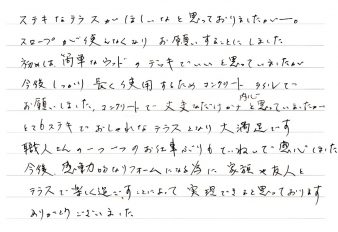 ステキなテラスがほしいなと思っておりましたが一。
スロープが使えなくなりお願いすることにしました
初めは、簡単なウッドのデッキでいいと思っていましたが
今後しっかり長く使用するためコンクリートタイルで
お願いしました。コンクリートで大丈夫だけかナと内心思っていましたが
とてもステキでおしゃれなテラスとなり大満足です
職人さんの一つ一つのお仕事ぶりもていねいで感心しました
今後、感動的なリフォームになる為に家族や友人と
テラスで楽しく過ごすことによって実現できると思っております
ありがとうございました